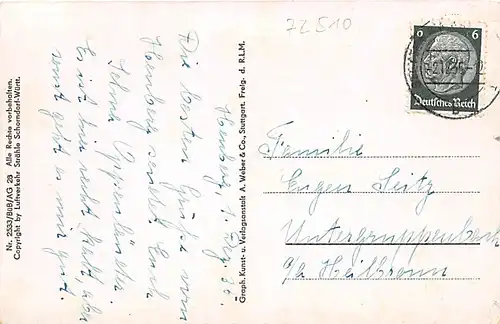 72510
6 6
Deutsches Reich
Familie
Eugen Seitz
Untergruppenbach
a/ Heilbronn
Herrenberg, 1. 35.
Die besten Grüsse vom
sendet Euch
Es ist hier recht kalt, aber
sonst geht es mir gut.
Graph. Kunst- u. Verlagsanstalt A. Weber & Co., Stuttgart. Freig. d. R.L.M.
Nr. 2533/BüB/AG 28 Alle Rechte vorbehalten.
Copyright by Luftverkehr Strähle Schorndorf-Württ.